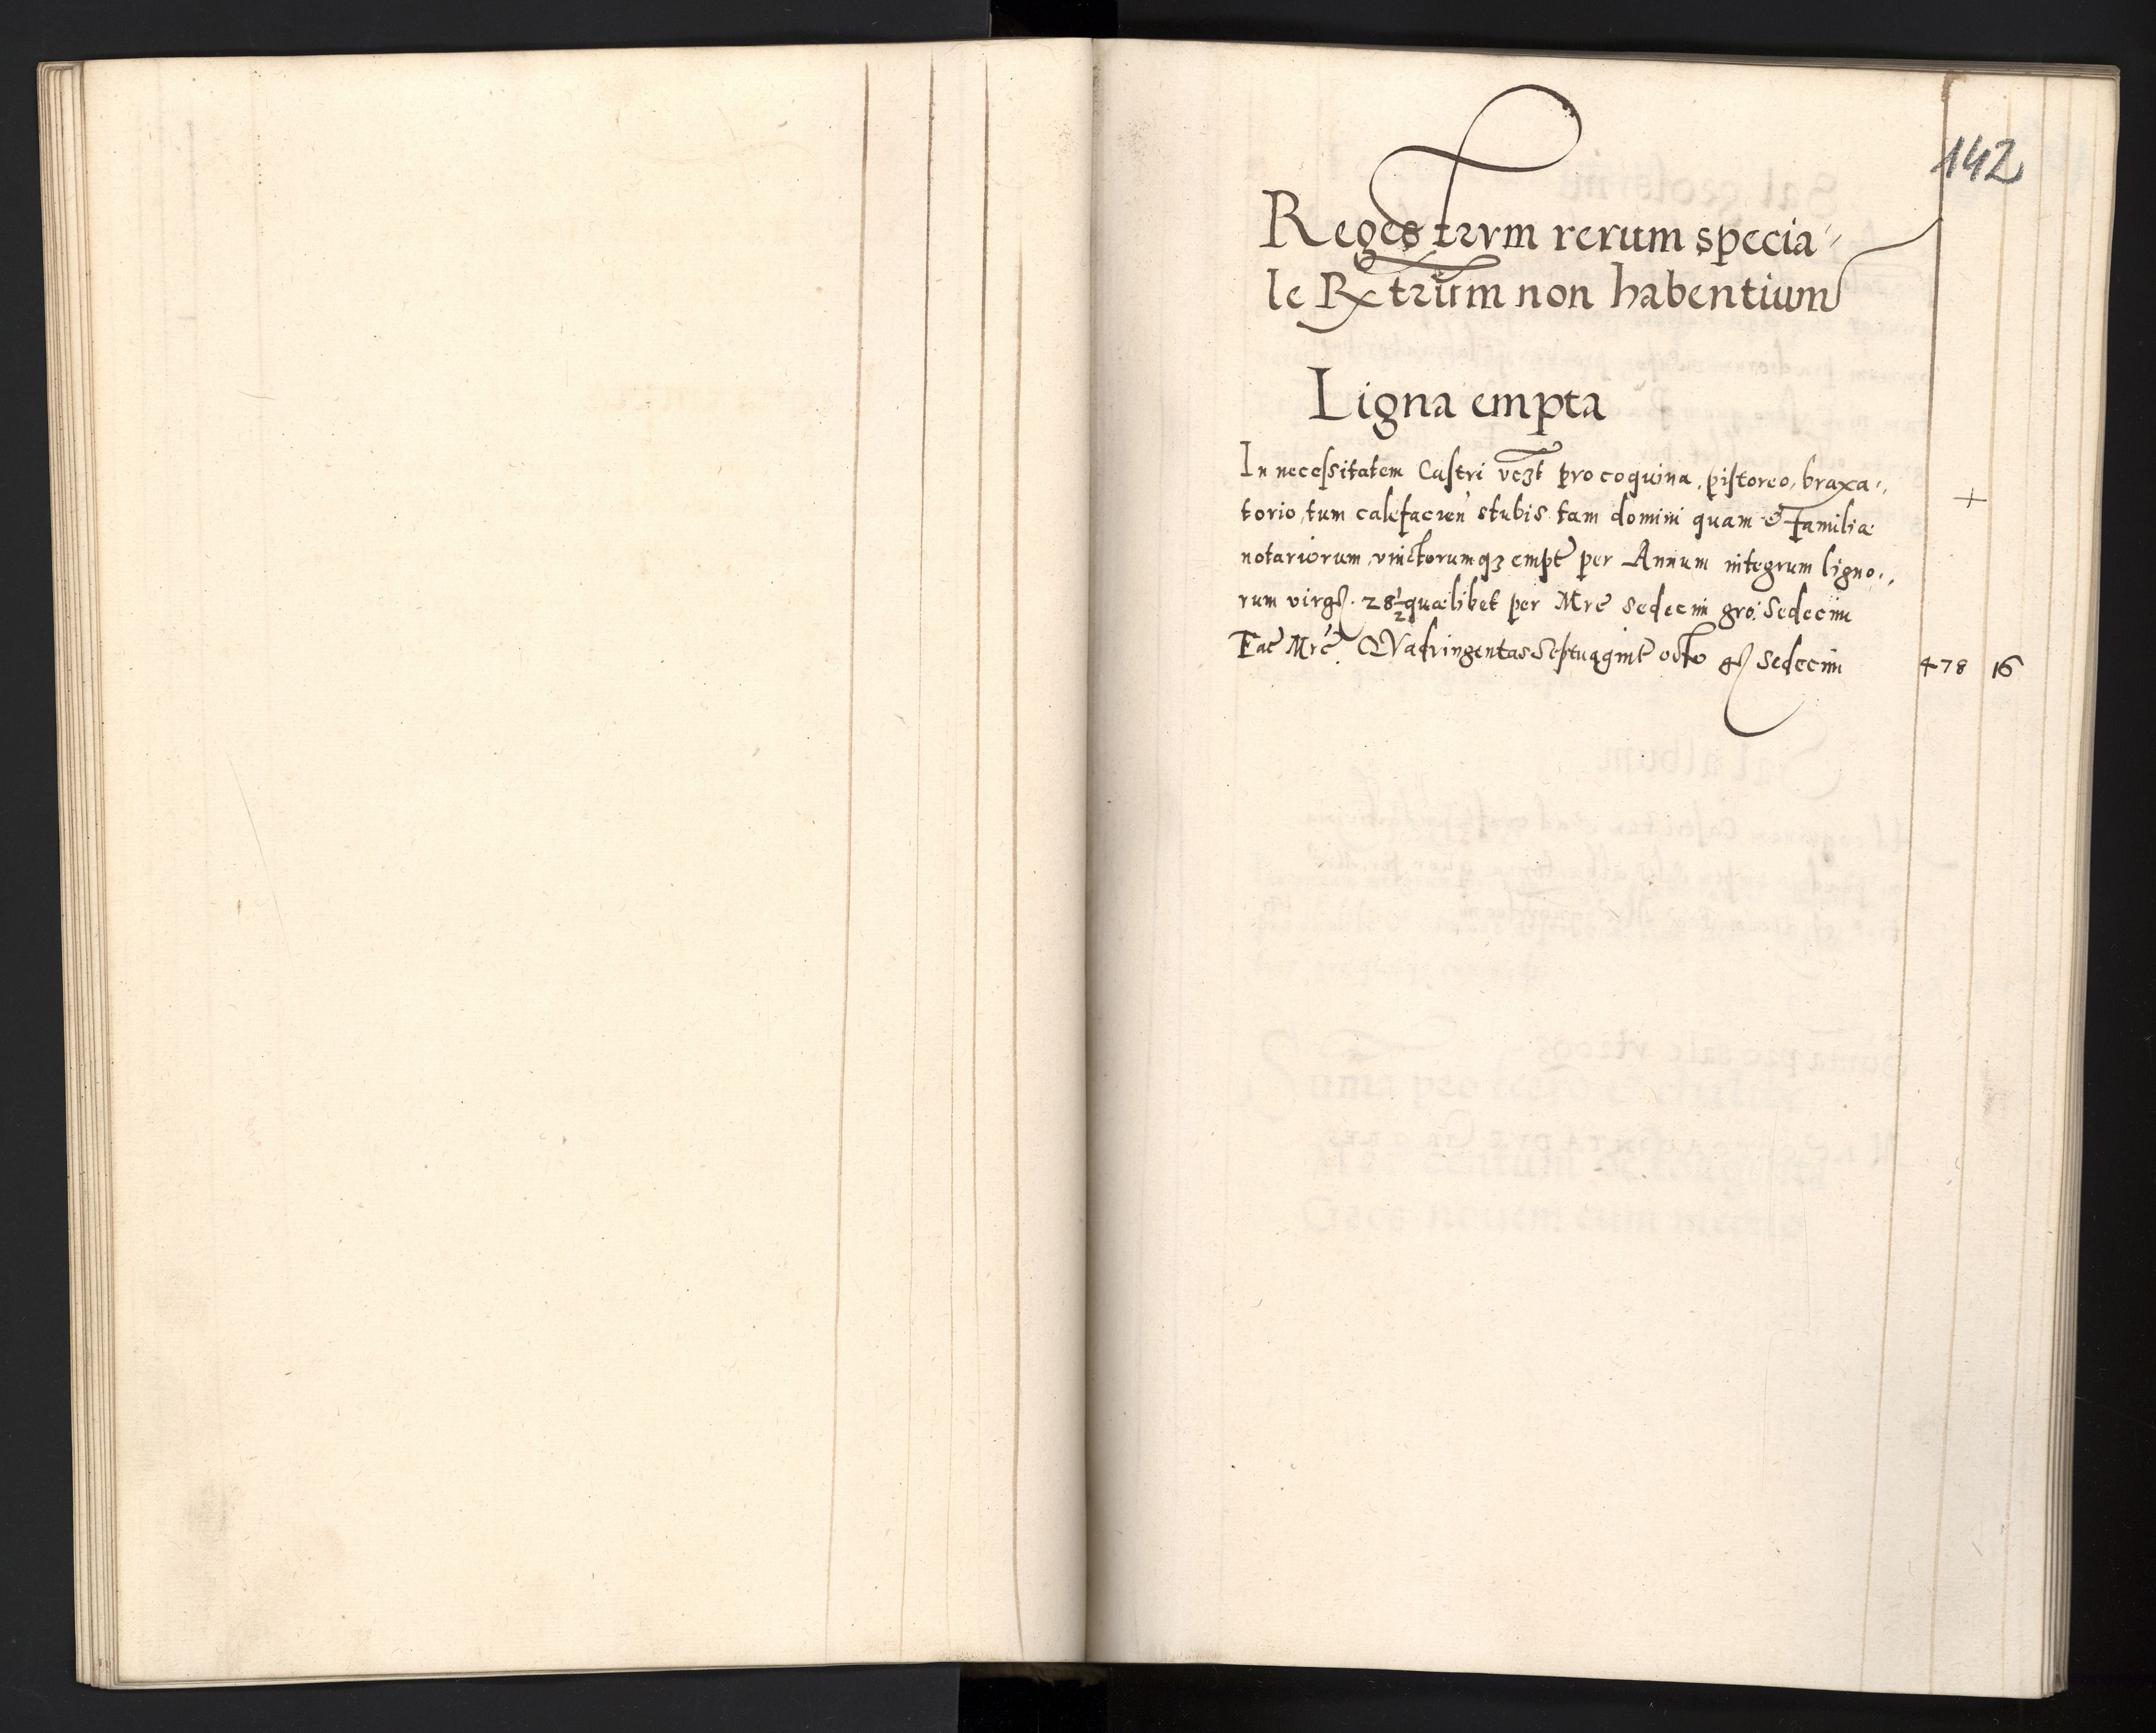 142
Regestrvm rerum specia
le Rxtrum non habentium
Ligna empta
In necessitatem Castri vczt pro coquina, pistoreo, braxa
torio, tum calefacien stubis tam domini quam & Familiæ
notariorum vinctorumqз empt per Annum integrum ligno
rum virg. 28½ quælibet per Mrc sedecim gro: Sedecim
Fac Mrc. QVadringentas Septuagint octo g Sedecim 478 16
+